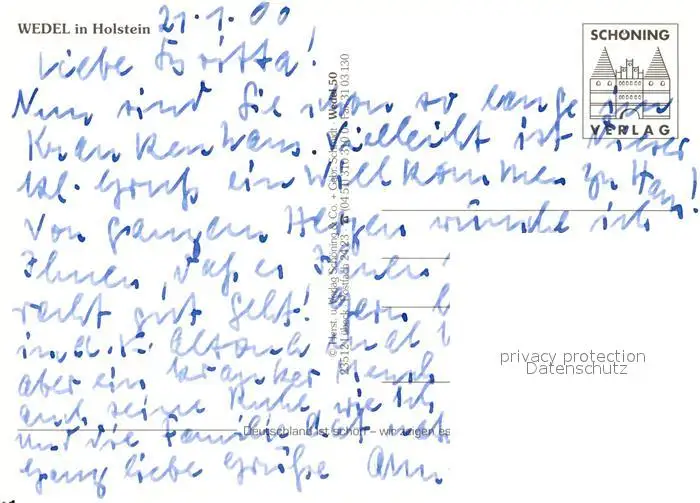 WEDEL in Holstein
21.1.00
Liebe Britta!
Nun sind Sie schon so lange im
Krankenhaus. Vielleicht ist dieser
kl. Gruß ein Willkommen zu Haus!
Von ganzem Herzen wünsche ich
Ihnen, daß es Ihnen
recht gut geht! Gern
in d. K. Altona mal
aber ein kranker Mensch
auch seine Ruhe wie ich
und die Familie
Ganz liebe Grüße
SCHÖNING
VERLAG
© Herst. u. Verlag Schöning & Co. + Gebr. Schmidt · Wedel 50
23512 Lübeck · Postfach 24 23
Deutschland ist schön – wir zeigen es
privacy protection
Datenschutz